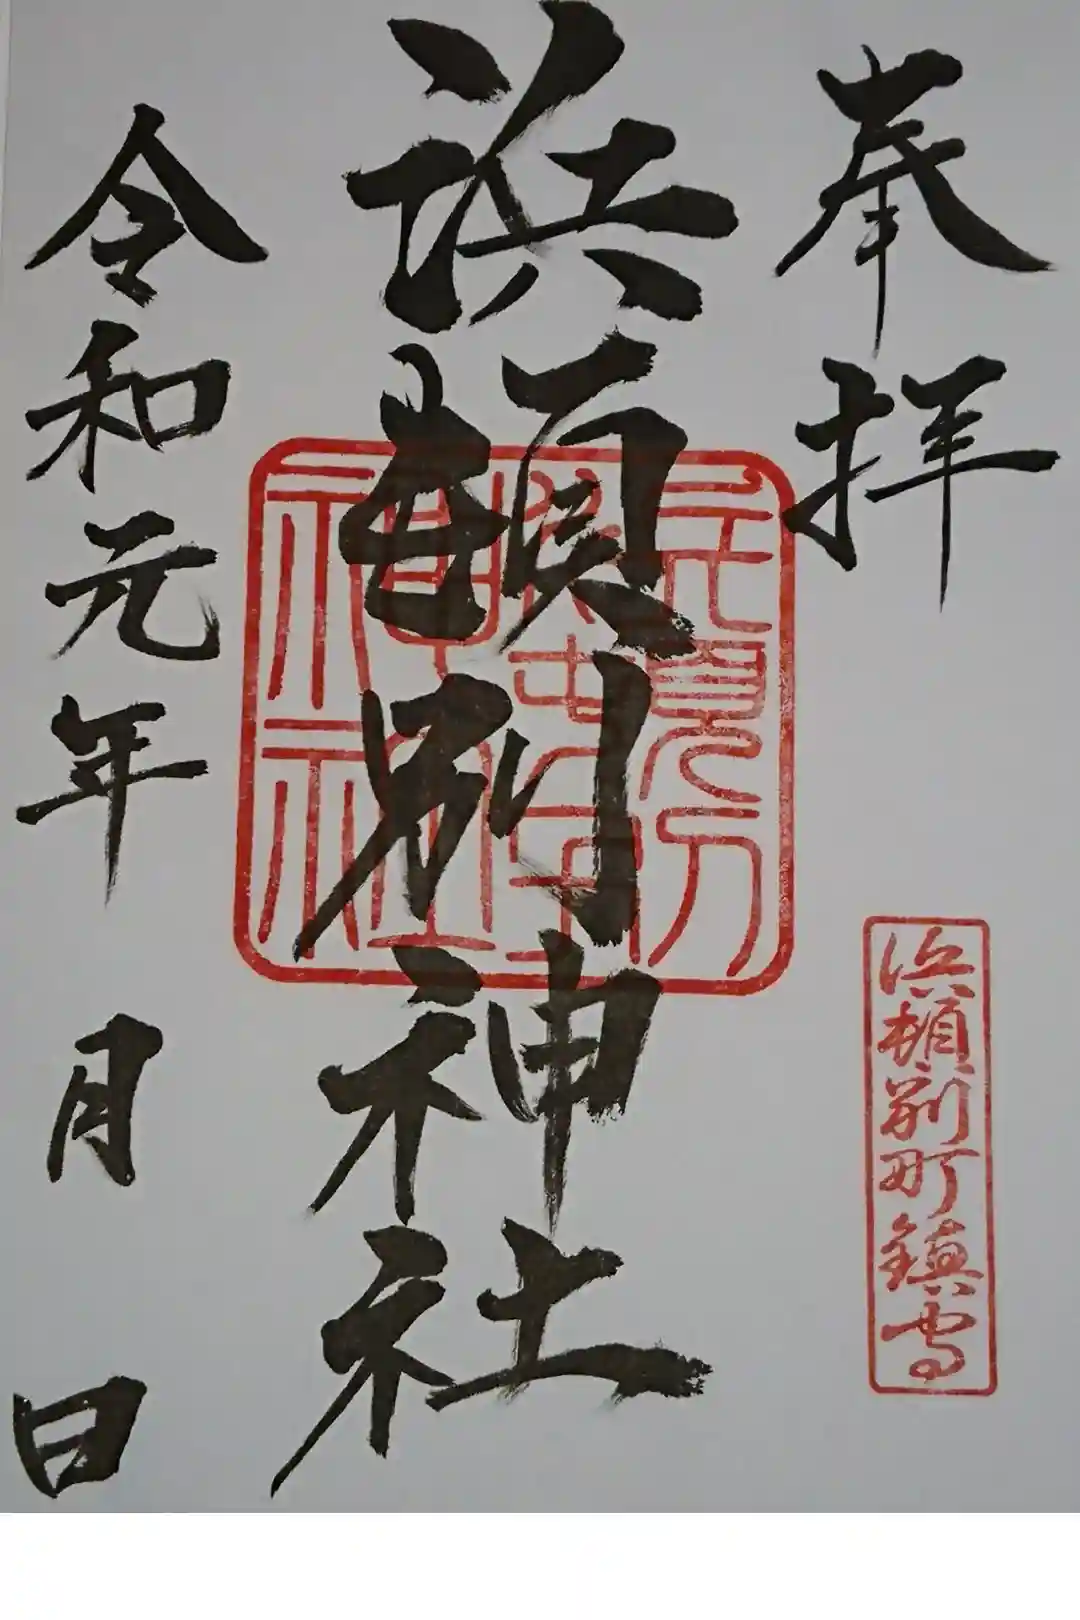 奉拝
浜頓別町鎮守
浜頓別神社
令和元年 月 日